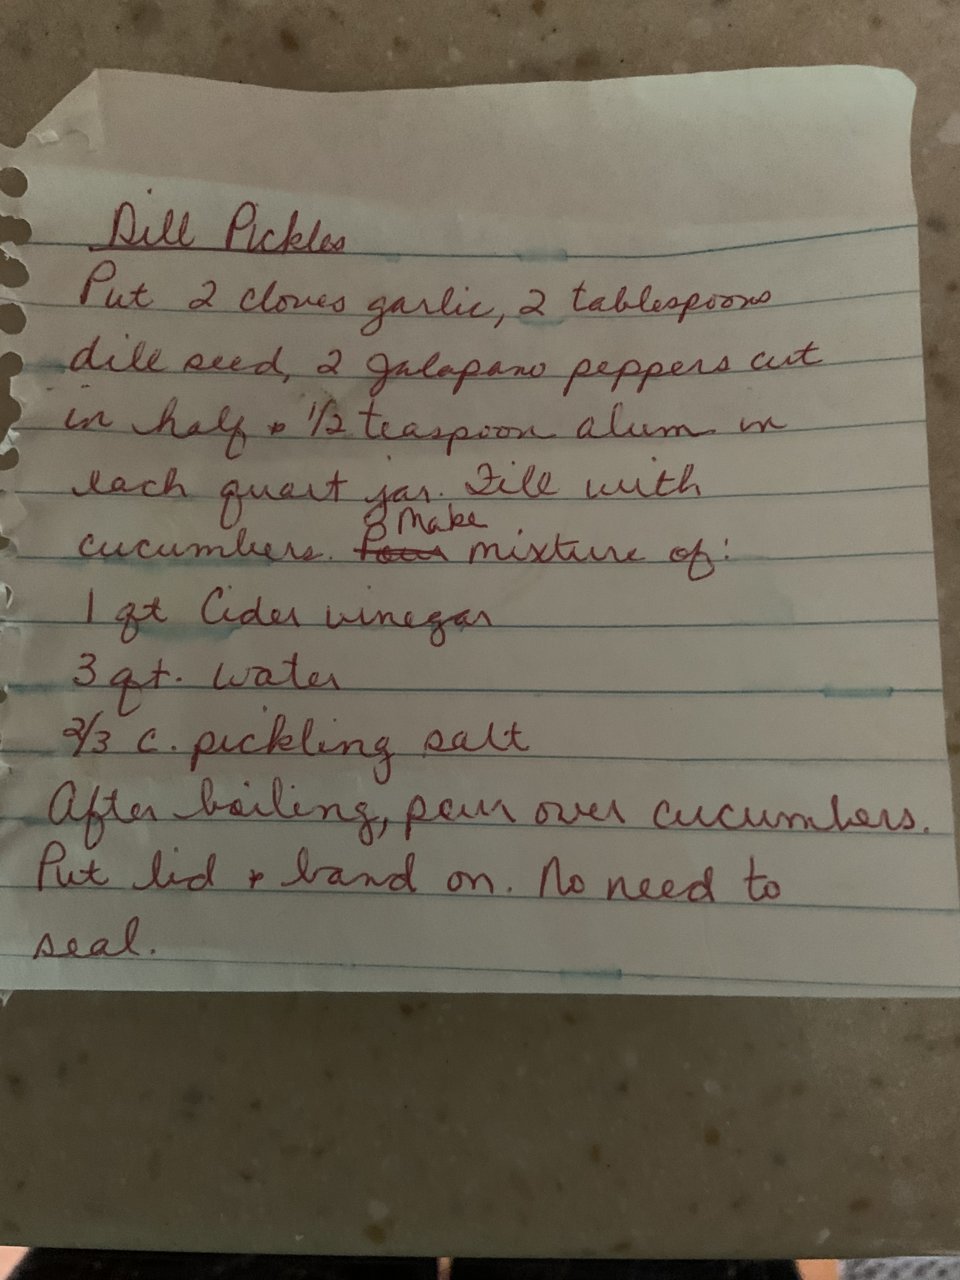 Dill Pickles
Put 2 cloves garlic, 2 tablespoons
dill seed, 2 galapano peppers cut
in half & 1/2 teaspoon alum in
each quart jar. Fill with
Make
cucumbers. mixture of:
1 qt Cider vinegar
3 qt. water
2/3 c. pickling salt
After boiling, pour over cucumbers.
Put lid & band on. No need to
seal.